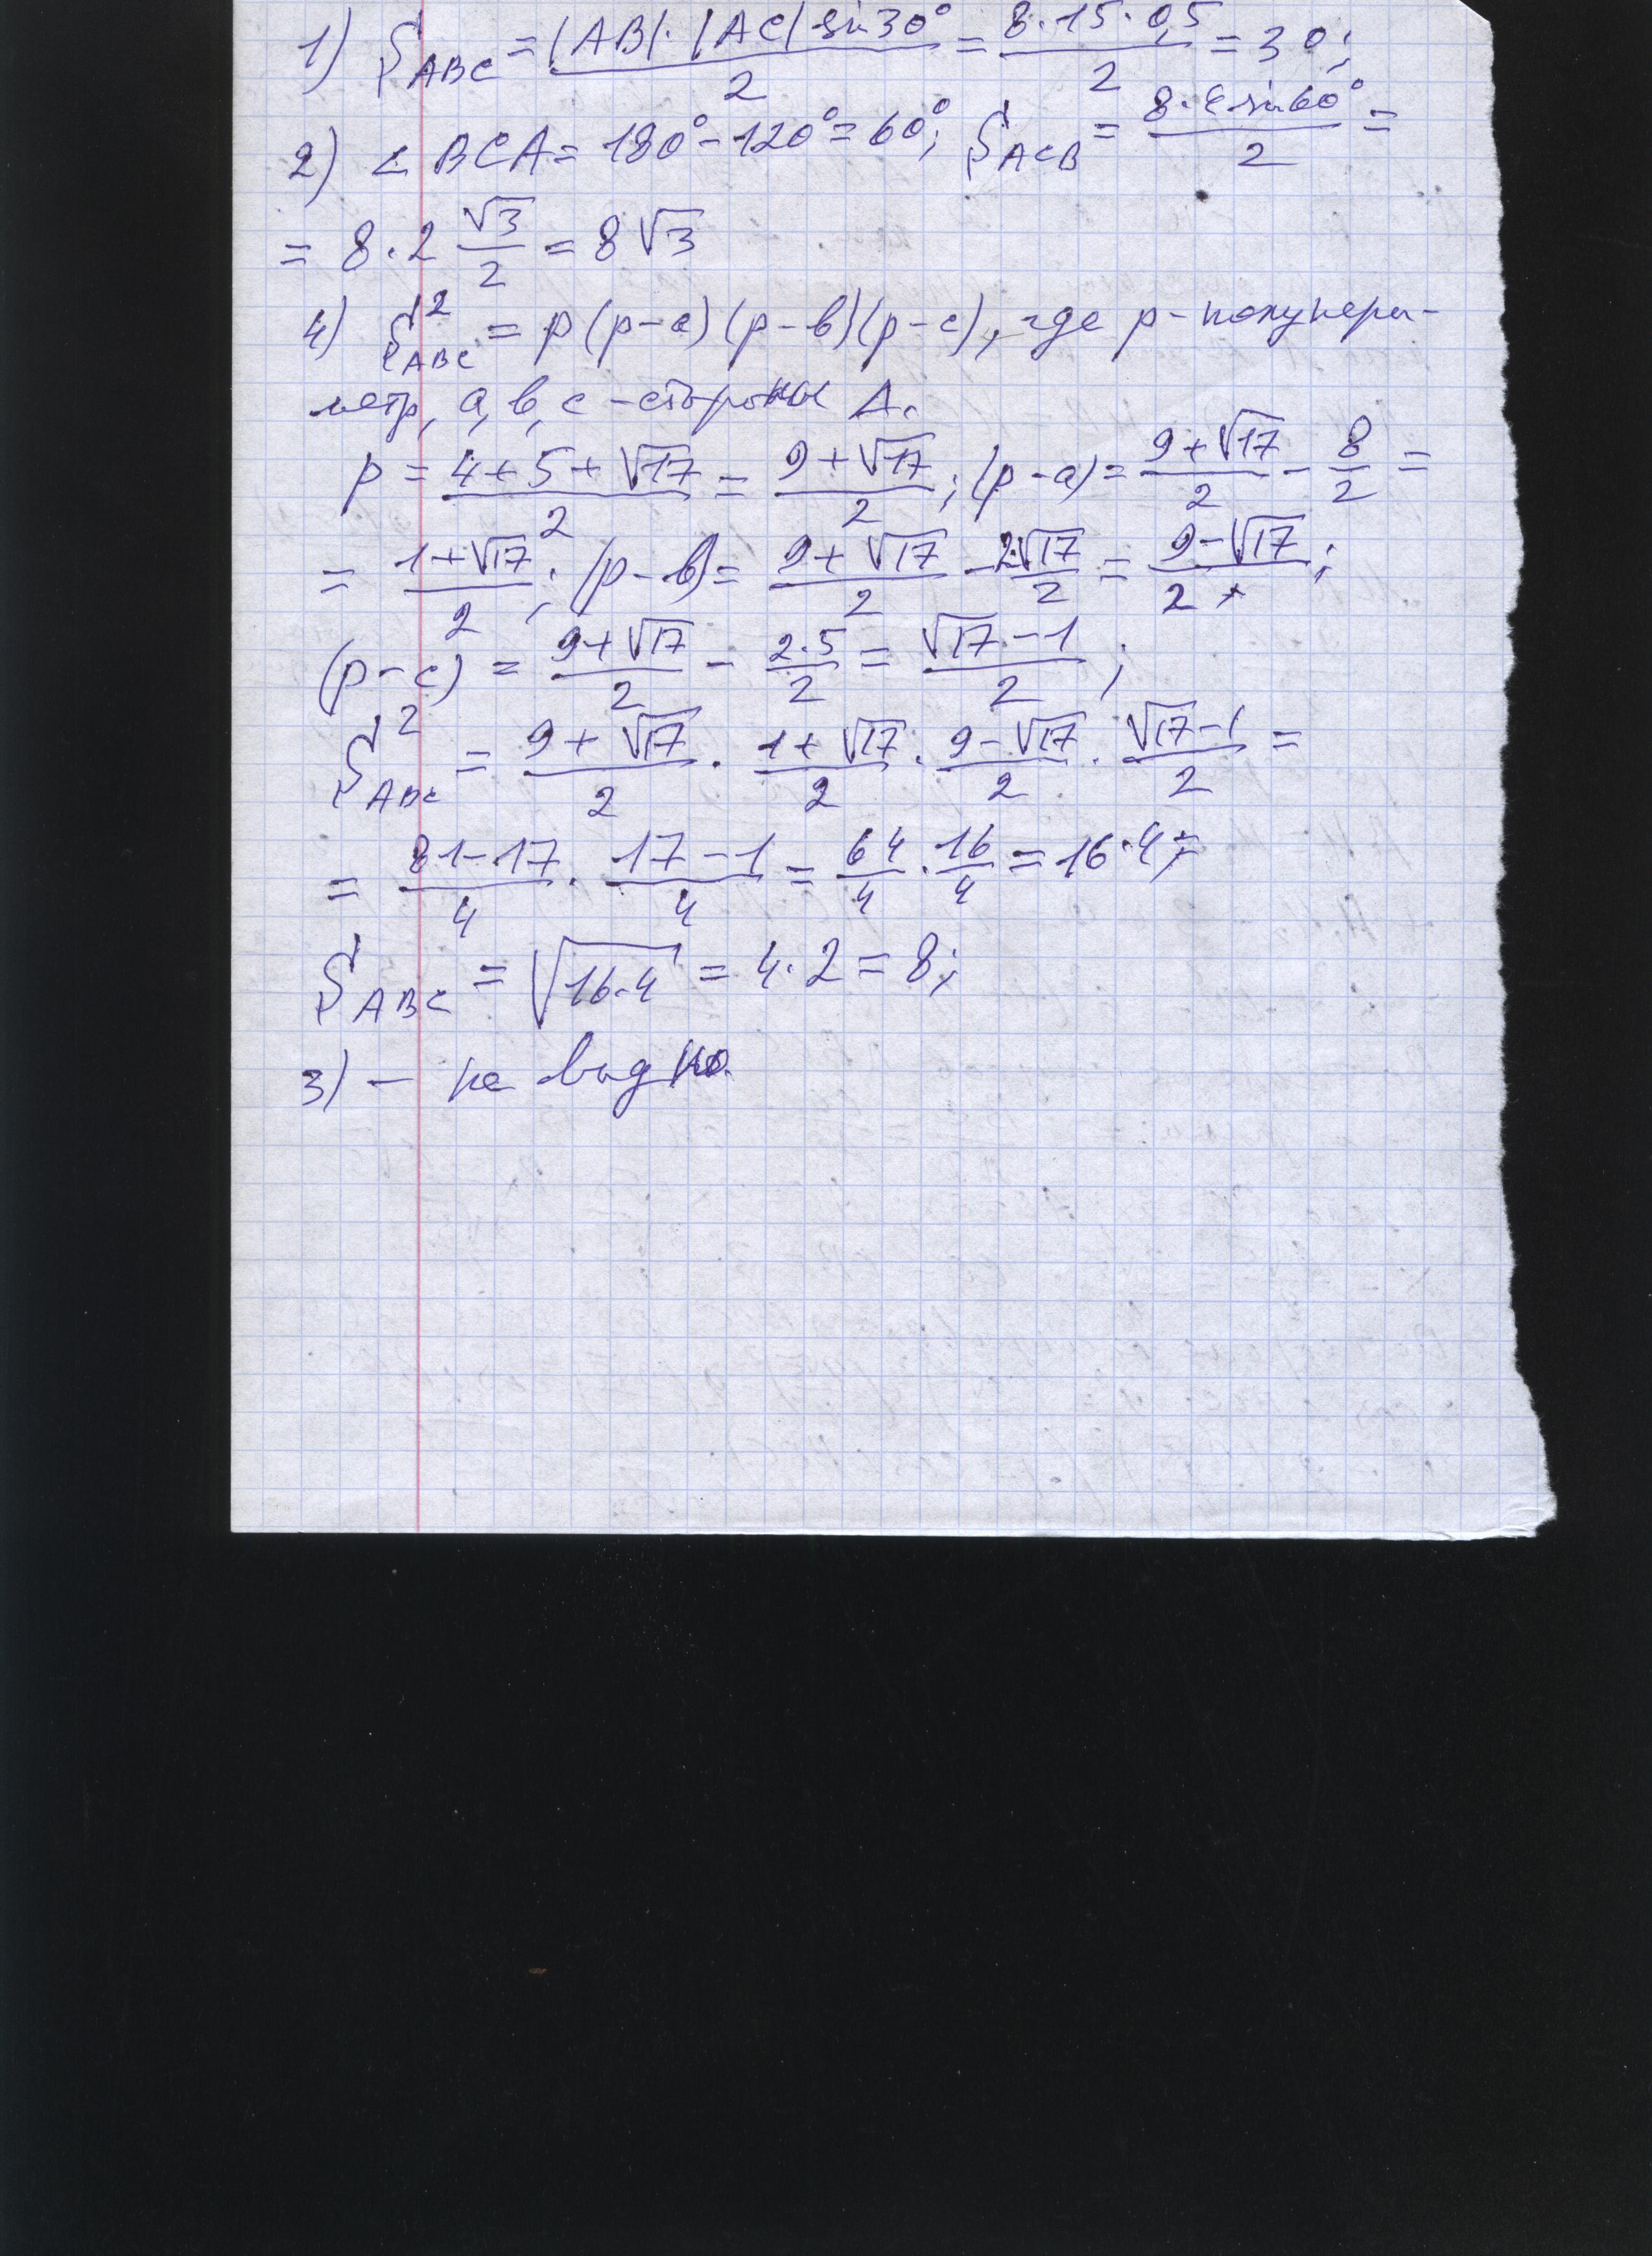 1) S_ABC = |AB|·|AC| sin 30° / 2 = 8·15·0,5 / 2 = 30;
2) ∠ BCA = 180° - 120° = 60°; S_ACB = 8·4 sin 60° / 2 =
= 8·2 √3/2 = 8√3
4) S²_ABC = p(p-a)(p-в)(p-c), где p - полупери-
метр, a, в, c - стороны Δ.
p = (4+5+√17)/2 = (9+√17)/2; (p-a) = (9+√17)/2 - 8/2 =
= (1+√17)/2; (p-в) = (9+√17)/2 - 2√17/2 = (9-√17)/2;
(p-c) = (9+√17)/2 - 2·5/2 = (√17-1)/2;
S²_ABC = (9+√17)/2 · (1+√17)/2 · (9-√17)/2 · (√17-1)/2 =
= (81-17)/4 · (17-1)/4 = 64/4 · 16/4 = 16·4;
S_ABC = √(16·4) = 4·2 = 8;
3) - не видно.